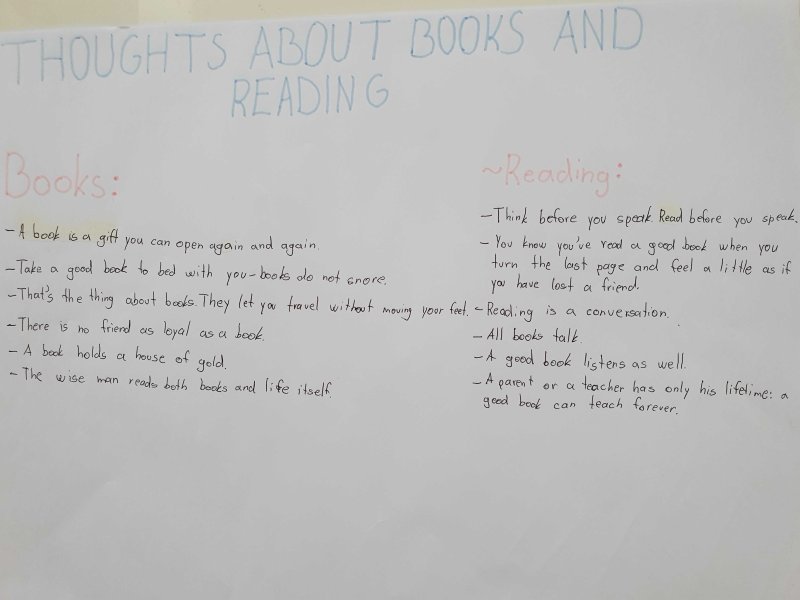 THOUGHTS ABOUT BOOKS AND
READING
Books:
- A book is a gift you can open again and again.
- Take a good book to bed with you - books do not snore.
- That's the thing about books. They let you travel without moving your feet.
- There is no friend as loyal as a book.
- A book holds a house of gold.
- The wise man reads both books and life itself.
~Reading:
- Think before you speak. Read before you speak.
- You know you've read a good book when you
turn the last page and feel a little as if
you have lost a friend.
- Reading is a conversation.
- All books talk.
- A good book listens as well.
- A parent or a teacher has only his lifetime: a
good book can teach forever.